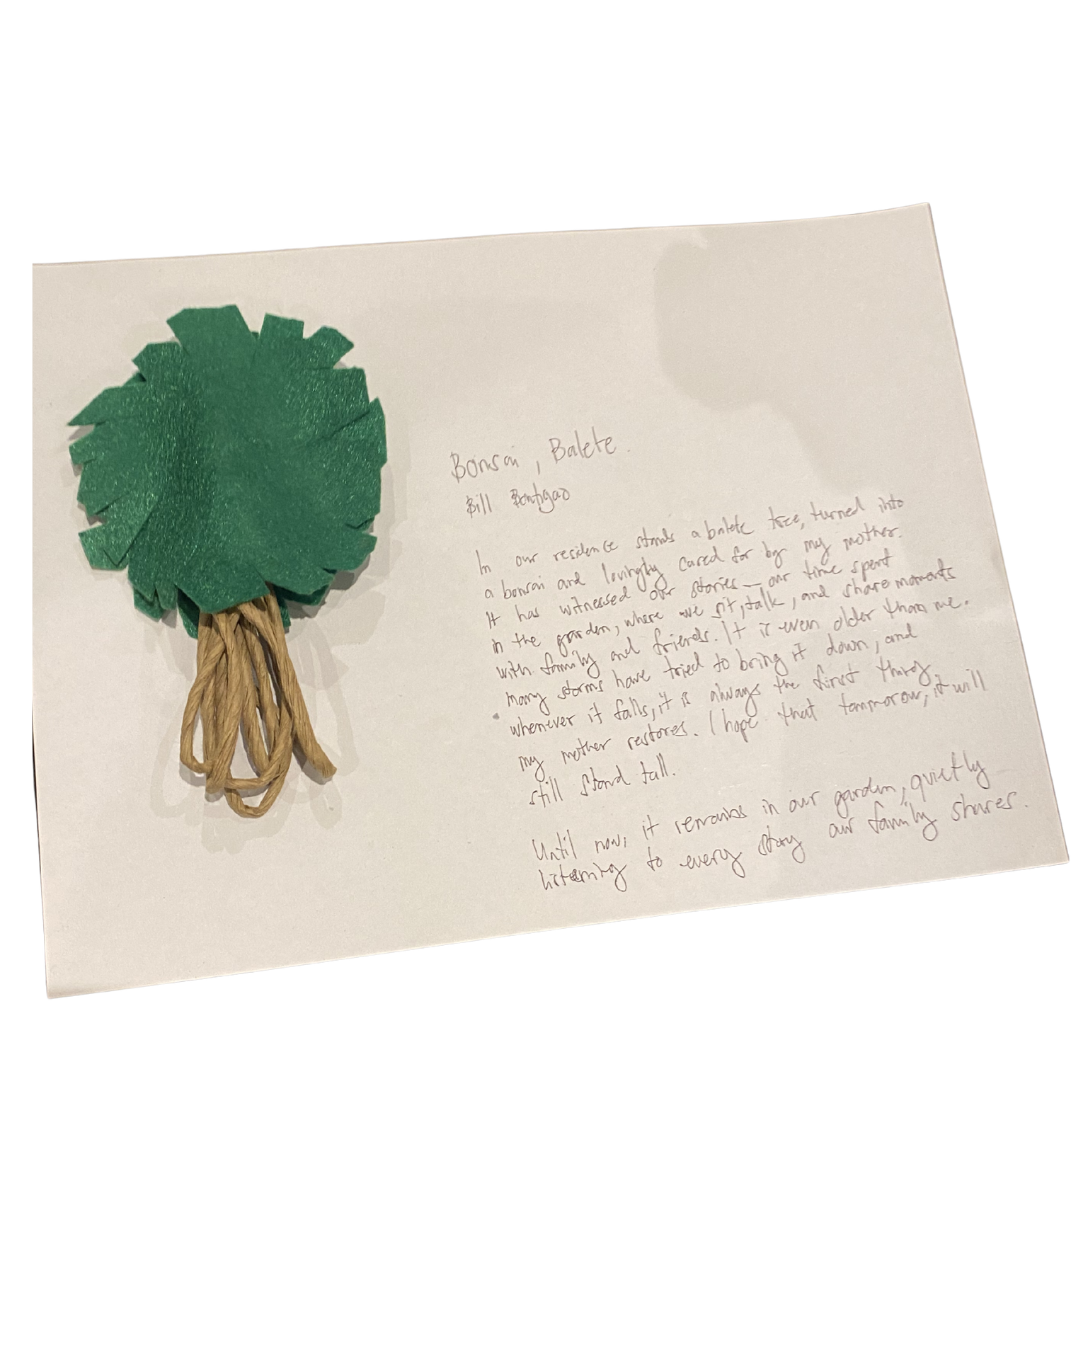 Bonsai, Balete.
Bill Bontigao
In our residence stands a balete tree, turned into
a bonsai and lovingly cared for by my mother.
It has witnessed our stories — our time spent
in the garden, where we sit, talk, and share moments
with family and friends. It is even older than me.
Many storms have tried to bring it down, and
whenever it falls, it is always the first thing
my mother restores. I hope that tommorow, it will
still stand tall.
Until now, it remains in our garden, quietly
listening to every story our family shares.